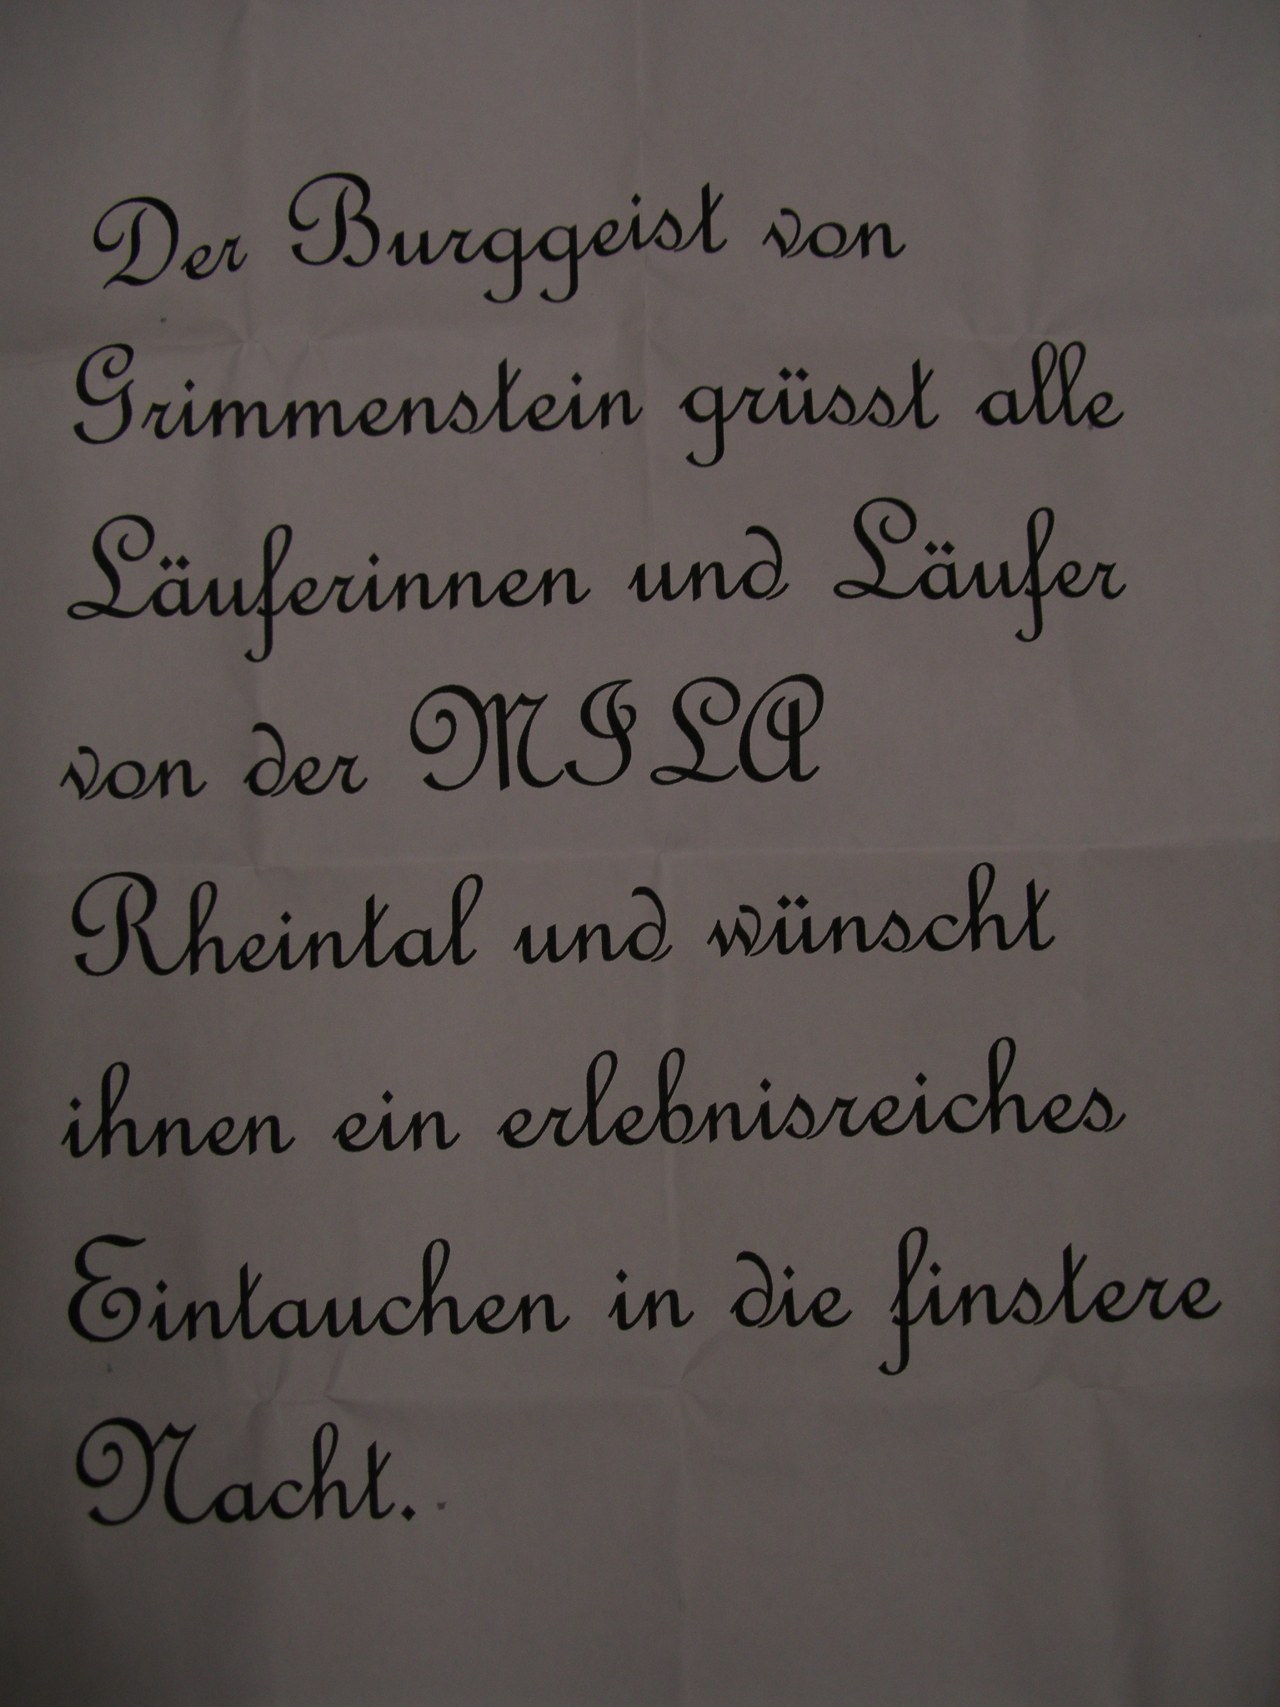 Der Burggeist von
Grimmenstein grüsst alle
Läuferinnen und Läufer
von der MILA
Rheintal und wünscht
ihnen ein erlebnisreiches
Eintauchen in die finstere
Nacht.